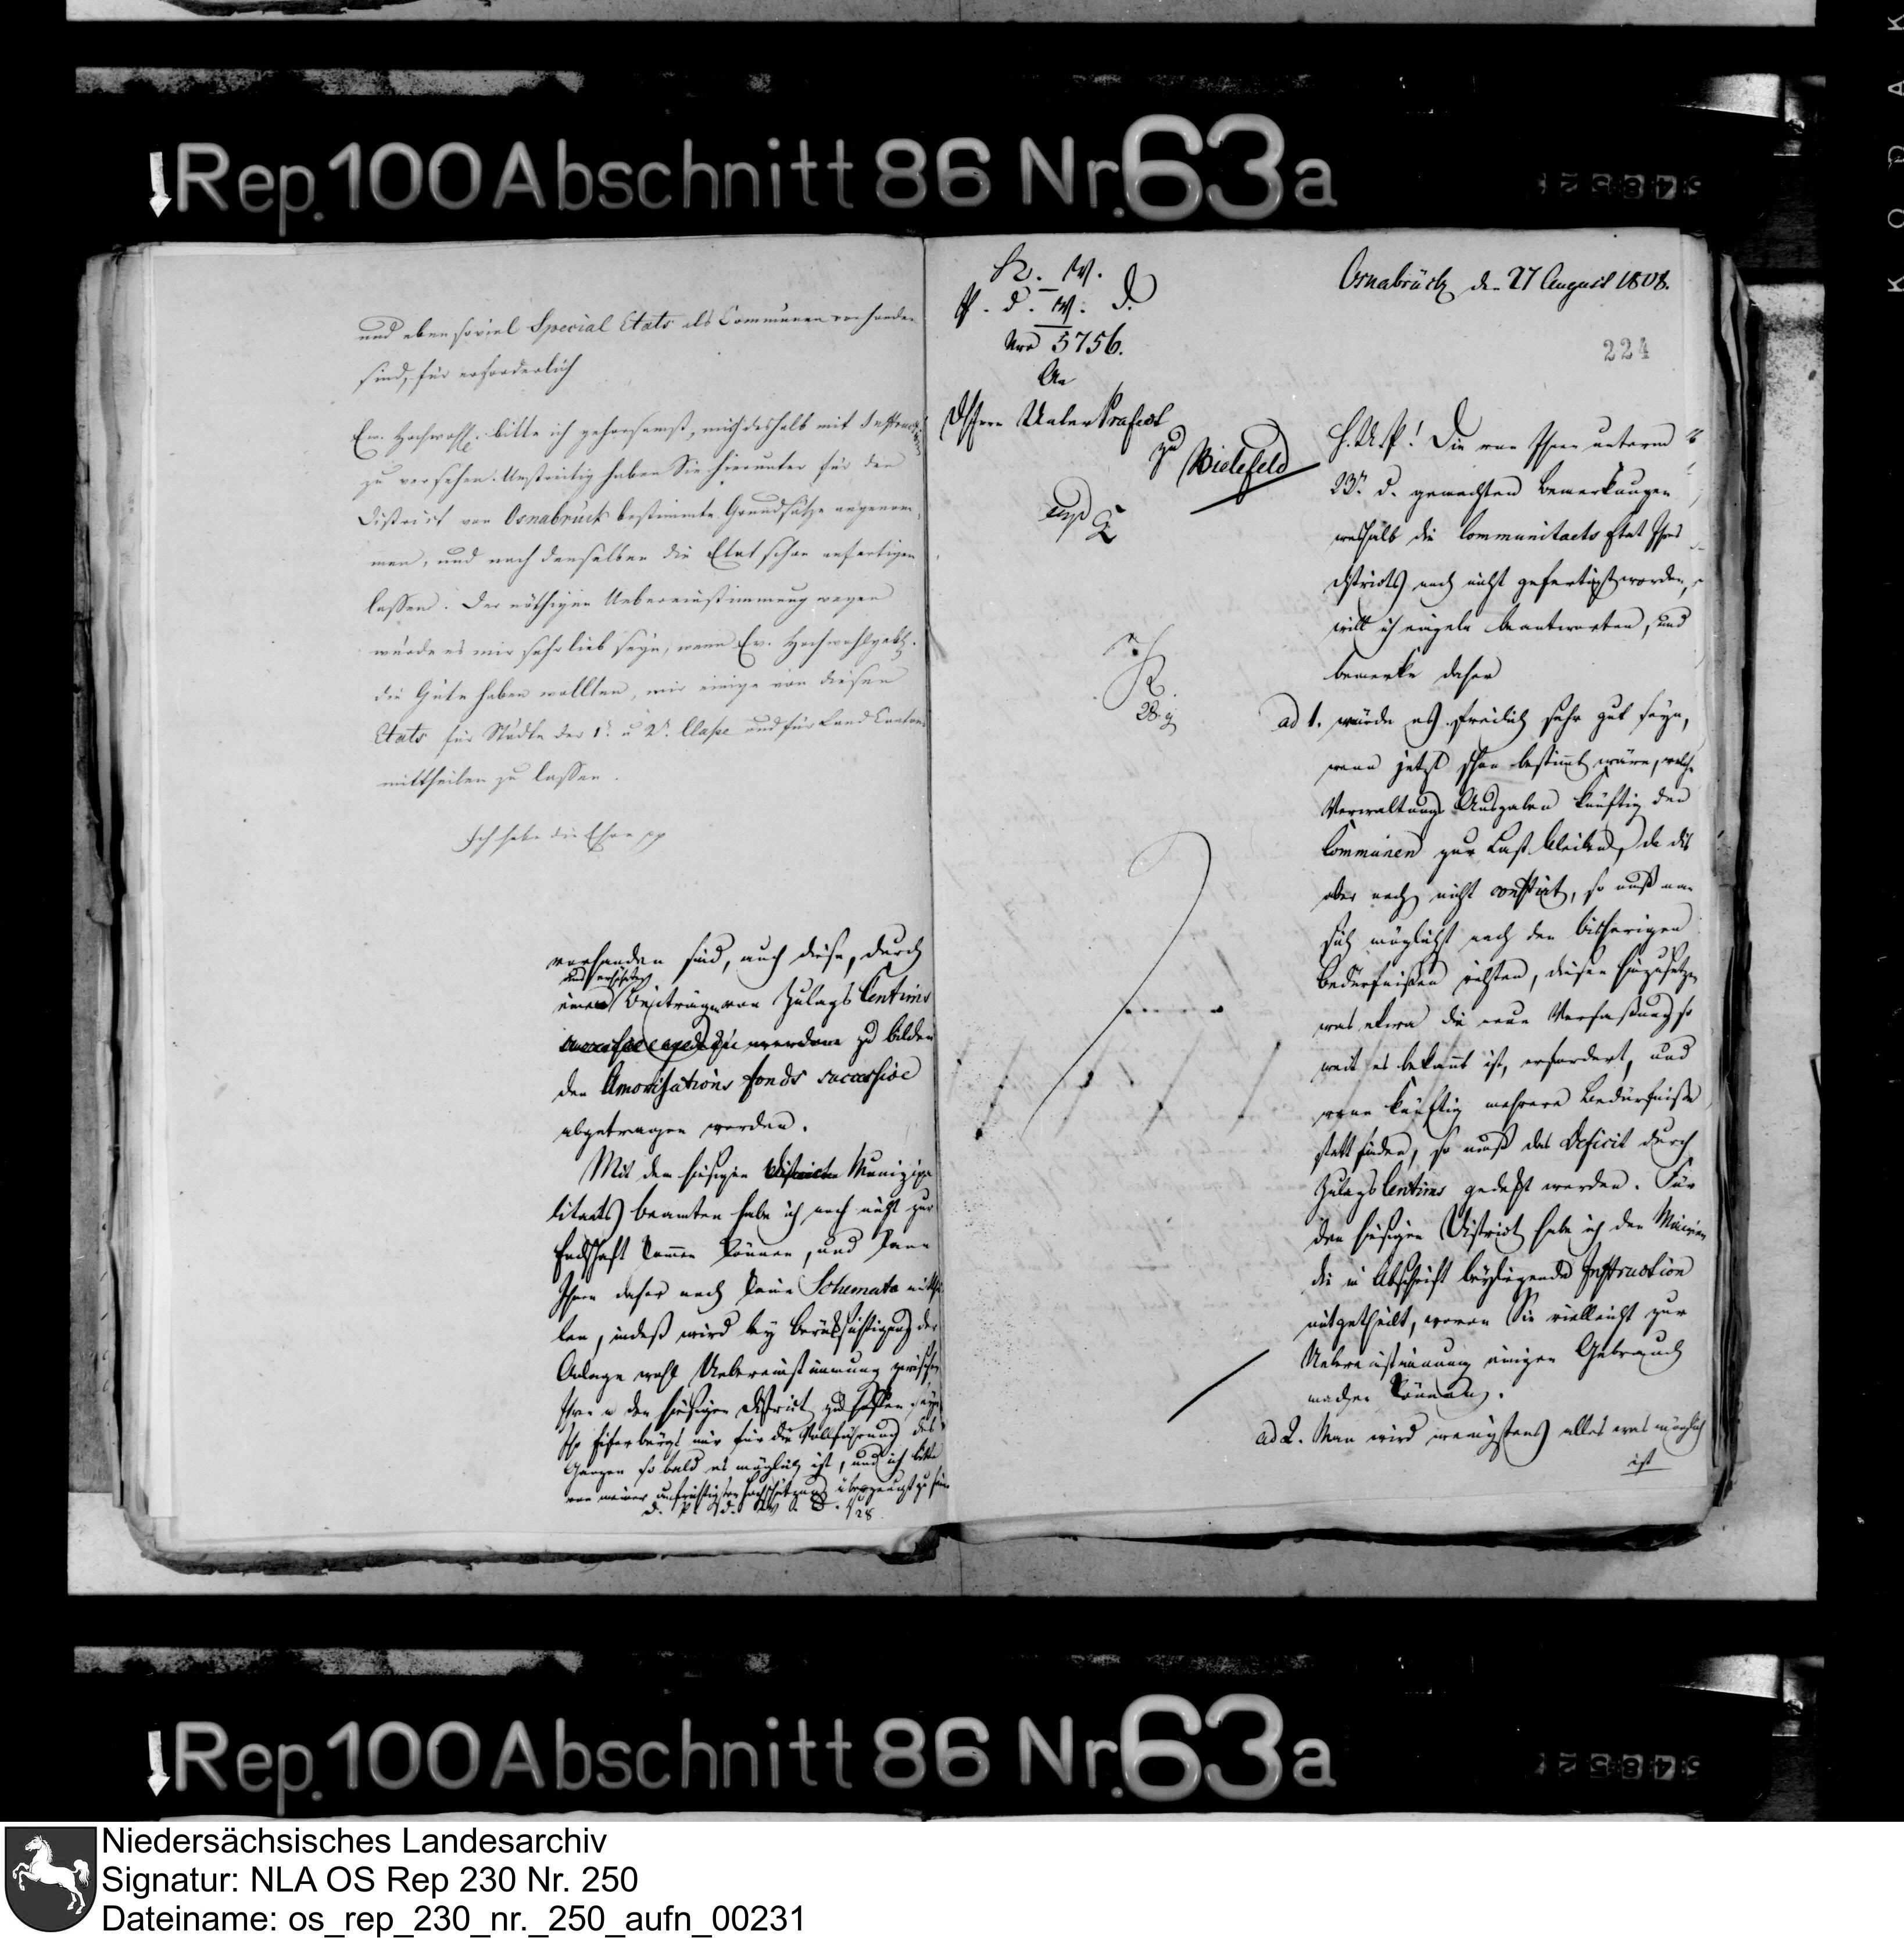 Rep. 100 Abschnitt 86 Nr. 63a
und eben soviel Special Etats als Communen vorhanden
sind, für erforderlich
Ew. Hochwohl. bitte ich gehorsamst, mich deshalb mit Instruction
zu versehen. Unstreitig haben Sie hierunter für den
District von Osnabrück bestimmte Grundsätze angenom-
men, und nach denselben die Etat schon anfertigen
lassen. Der nöthigen Uebereinstimmung wegen
würde es mir sehr lieb seyn, wenn Ew. Hochwohlgeb.
die Güte haben wollten, mir einige von diesen
Etats für Städte der 1r. u 2r. Classe und für Land Cantons
mittheilen zu lassen.
Ich habe die Ehre pp
vorhanden sind, auch diese, durch
und
Beiträgen von Zulags Centims
zu bilden
den Amortisations fonds successive
abgetragen werden.
Mit den hiesigen Munizipa
litaets beamten habe ich noch nicht zur
Endschaft kommen können, und kann
Ihnen daher noch keine Schemata mitthei
len, indeß wird bey Berücksichtigung der
Anlage wohl Uebereinstimmung zwischen
Ihrem u dem hiesigen District zu hoffen seyn
Ihr Eifer bürgt mir für die Vollführung des
Ganzen so bald es möglich ist, und ich bitte
von meiner aufrichtigsten Hochschätzung überzeugt zu seyn
K. W.
P. d. W. D.
Nro 5756.
An
Herrn Unter Präfect
zu Bielefeld
Osnabrück den 27 August 1808.
224
H. U. P! Die von Ihnen unterm
23n. d. gemachten Bemerkungen
weshalb die Communitaets Etat Ihres
Districts noch nicht gefertigt worden,
will ich einzeln beantworten, und
bemerke daher
ad 1. würde es freilich sehr gut seyn,
wenn jetzt schon bestimmt wäre, welche
Verwaltungs Ausgaben künftig den
Communen zur Last bleiben, da dis
aber noch nicht constirt, so muß man
sich möglichst nach den bisherigen
Bedürfnißen richten, diesen hinzusetzen
was etwa die neue Verfaßung so
weit es bekannt ist, erfordert, und
wenn künftig mehrere Bedürfniße
statt finden, so muß das Deficit durch
Zulags Centims gedeckt werden. Für
den hiesigen District habe ich den Mairien
die in Abschrift beyliegende Instruction
mitgetheilt, wovon Sie vielleicht zur
Uebereinstimmung einigen Gebrauch
machen können.
ad 2. Man wird wenigstens alles was möglich
ist
Rep. 100 Abschnitt 86 Nr. 63a
Niedersächsisches Landesarchiv
Signatur: NLA OS Rep 230 Nr. 250
Dateiname: os_rep_230_nr._250_aufn_00231